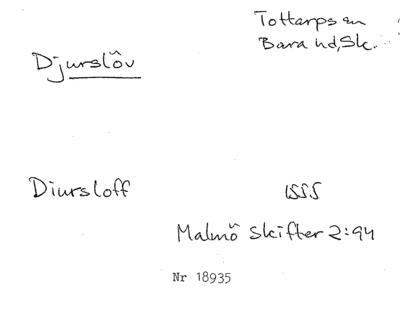 Tottarps sn
Bara hd, Sk.
Djurslöv
Diursloff 1555
Malmö Skifter 2:94
Nr 18935